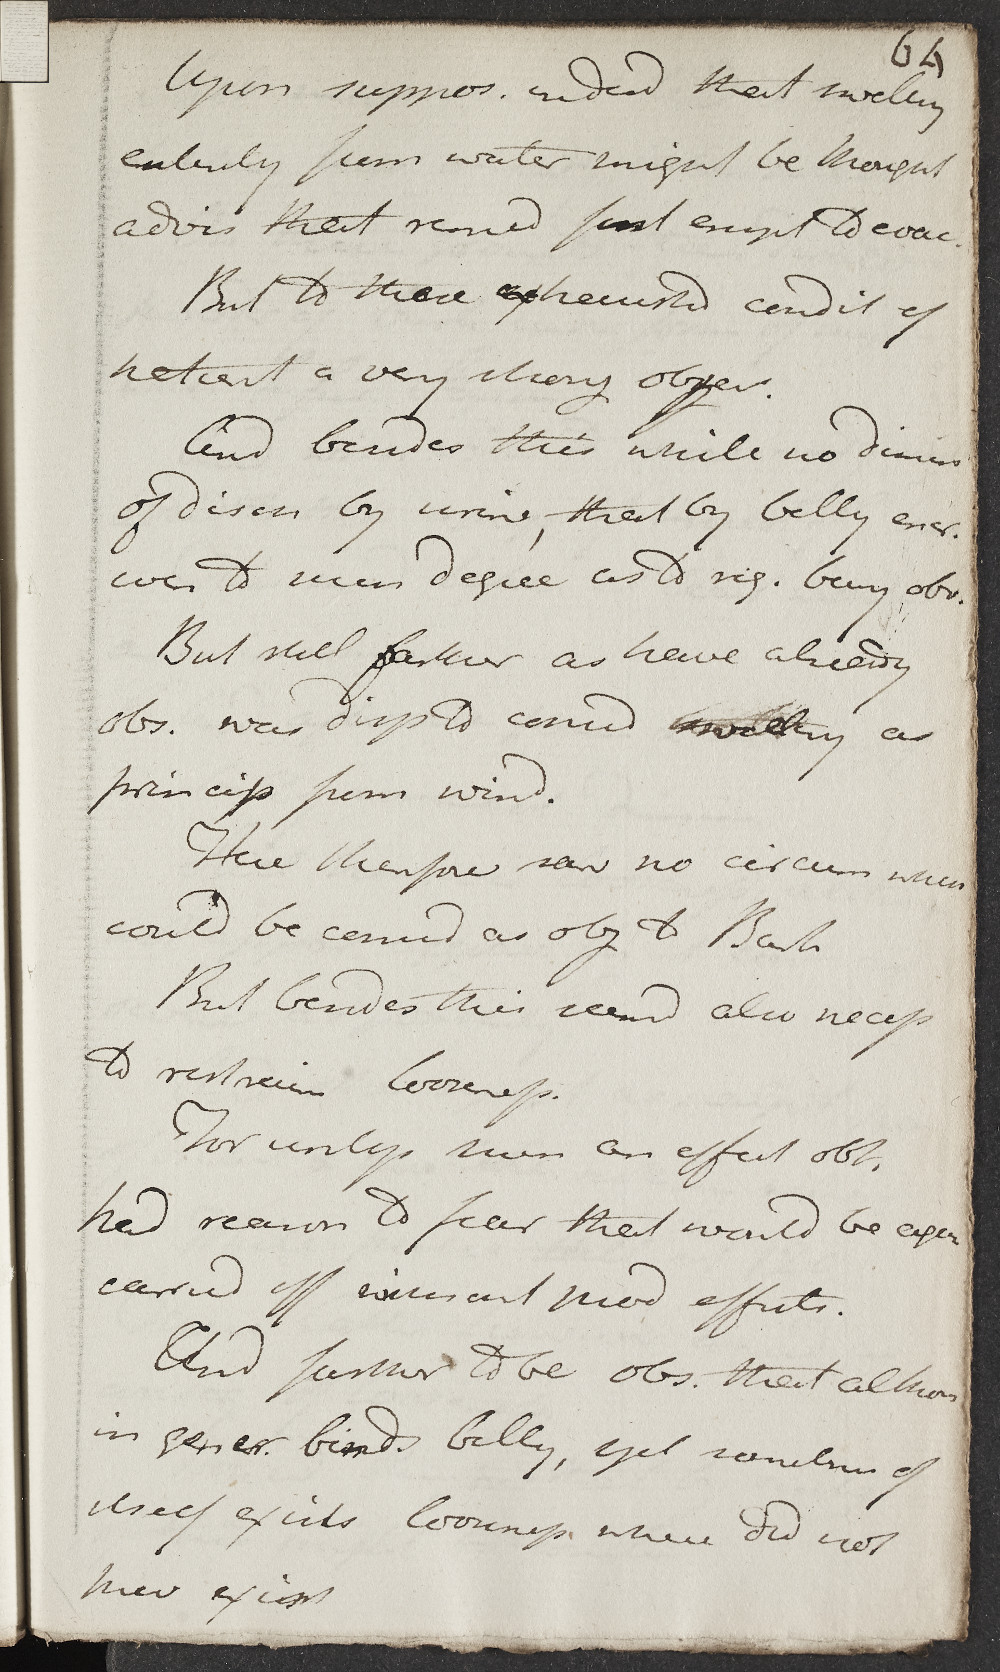 64
Upon suppos. indeed that swelling
entirely from water might be thought
advis that remed first empt to evac.
But to there exhausted condit of
patient a very strong objec.
And besides this while no dimin
of discn by urine, that by belly encr.
even to such degree as to reg. being obv.
But still farther as have already
obs. was disp to consid swelling as
princip from wind.
Here therefore saw no circum which
could be consid as obj to Bark
But besides this seemd also necess
to restrain looseness.
For unless such an effect obt.
had reason to fear that would be again
carried off without prod effects.
And farther to be obs. that althou
in gener. binds belly, yet sometimes of
itself excites looseness where did not
prev exist